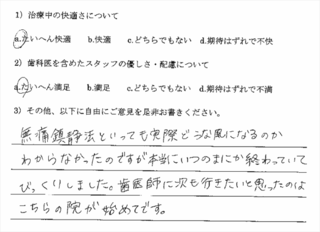 1）治療中の快適さについて
a.たいへん快適　b.快適　c.どちらでもない　d.期待はずれで不快
2）歯科医を含めたスタッフの優しさ・配慮について
a.たいへん満足　b.満足　c.どちらでもない　d.期待はずれで不満
3）その他、以下に自由にご意見を是非お書きください。
無痛鎮静法といっても実際どうな風になるのか
わからなかったのですが本当にいつのまにか終わっていて
びっくりしました。歯医師に次も行きたいと思ったのは
こちらの院が始めてです。